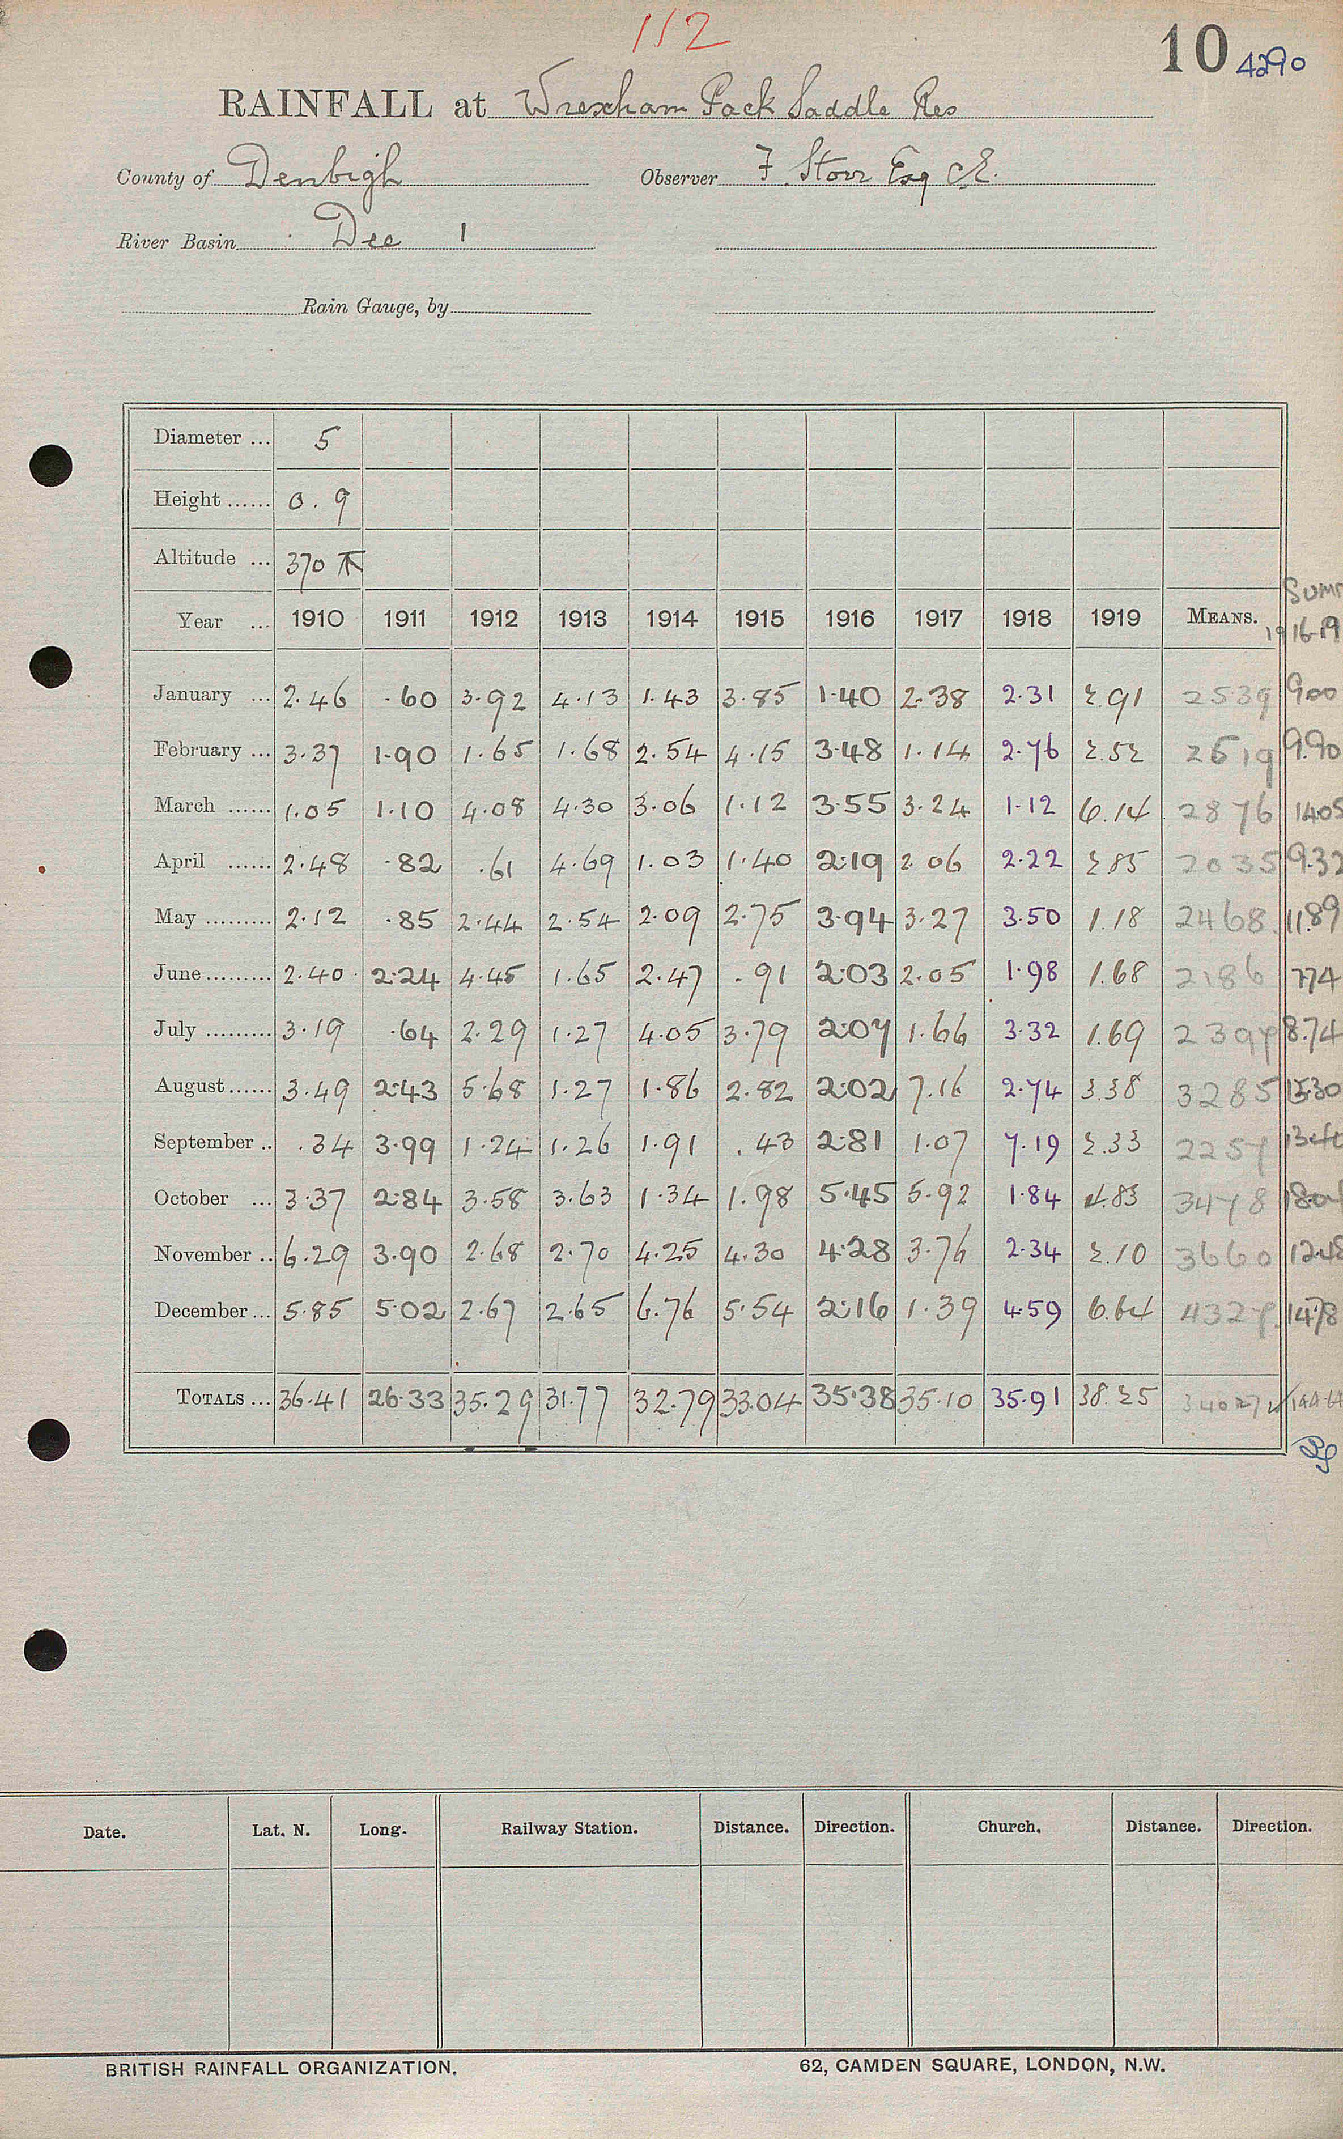 112
10 4290
RAINFALL at Wrexham Pack Saddle Res
County of Denbigh Observer F. Storr Esq C.E.
River Basin Dee 1
Rain Gauge, by
Diameter ... 5
Height ...... 0.9
Altitude ... 370
Sums
Year ... 1910 1911 1912 1913 1914 1915 1916 1917 1918 1919 MEANS. 1916-19
January ... 2.46 .60 3.92 4.13 1.43 3.85 1.40 2.38 2.31 2.91 2539 900
February ... 3.37 1.90 1.65 1.68 2.54 4.15 3.48 1.14 2.76 2.52 2519 9.90
March ...... 1.05 1.10 4.08 4.30 3.06 1.12 3.55 3.24 1.12 6.14 2876 1405
April ...... 2.48 .82 .61 4.69 1.03 1.40 2.19 2.06 2.22 2.85 2035 9.32
May ......... 2.12 .85 2.44 2.54 2.09 2.75 3.94 3.27 3.50 1.18 2468 11.89
June ......... 2.40 2.24 4.45 1.65 2.47 .91 2.03 2.05 1.98 1.68 2186 7.74
July ......... 3.19 .64 2.29 1.27 4.05 3.79 2.07 1.66 3.32 1.69 2397 8.74
August ...... 3.49 2.43 5.68 1.27 1.86 2.82 2.02 7.16 2.74 3.38 3285 15.30
September .. .34 3.99 1.24 1.26 1.91 .43 2.81 1.07 7.19 2.33 2257 13.40
October ... 3.37 2.84 3.58 3.63 1.34 1.98 5.45 5.92 1.84 4.83 3478
November .. 6.29 3.90 2.68 2.70 4.25 4.30 4.28 3.76 2.34 2.10 3660 12.48
December ... 5.85 5.02 2.67 2.65 6.76 5.54 2.16 1.39 4.59 6.64 4327 14.78
TOTALS ... 36.41 26.33 35.29 31.77 32.79 33.04 35.38 35.10 35.91 38.25
Date. Lat. N. Long. Railway Station. Distance. Direction. Church. Distance. Direction.
BRITISH RAINFALL ORGANIZATION. 62, CAMDEN SQUARE, LONDON, N.W.